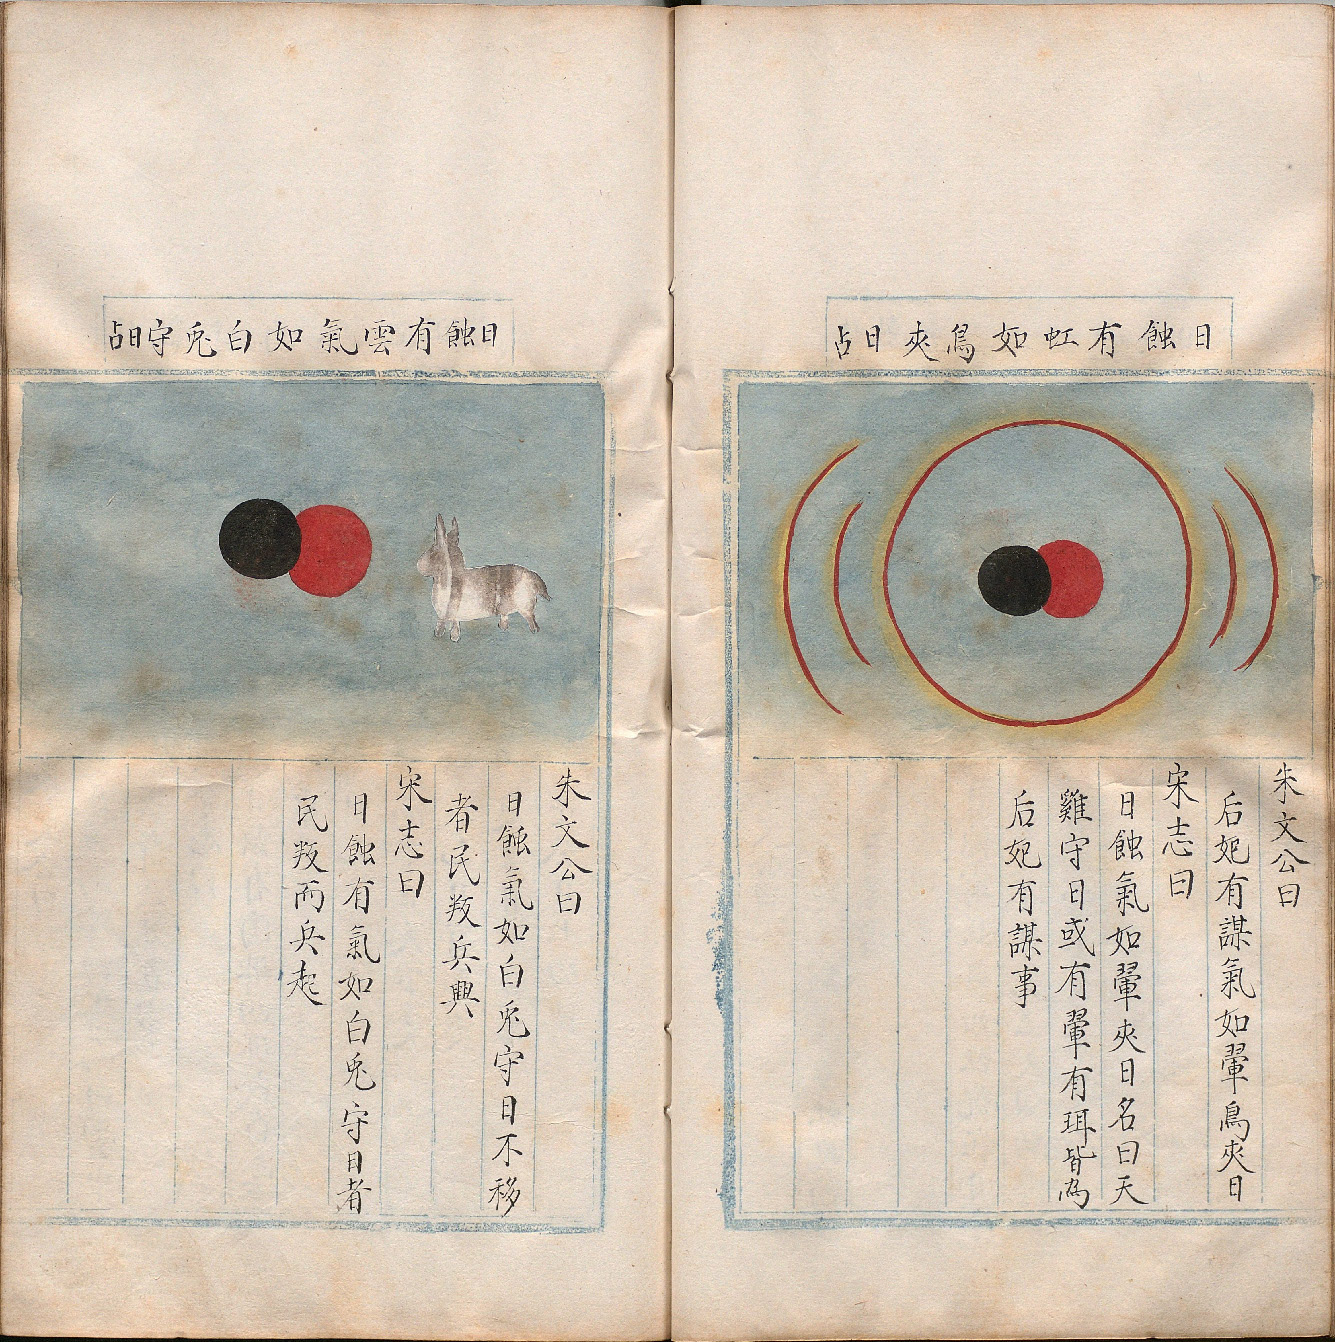 日蝕有虹如鳥夾日占
朱文公曰
后妃有謀氣如暈鳥夾日
宋志曰
日蝕氣如暈夾日名曰天
雞守日或有暈有珥皆為
后妃有謀事
日蝕有雲氣如白兎守日占
朱文公曰
日蝕氣如白兎守日不移
者民叛兵興
宋志曰
日蝕有氣如白兎守日者
民叛而兵起